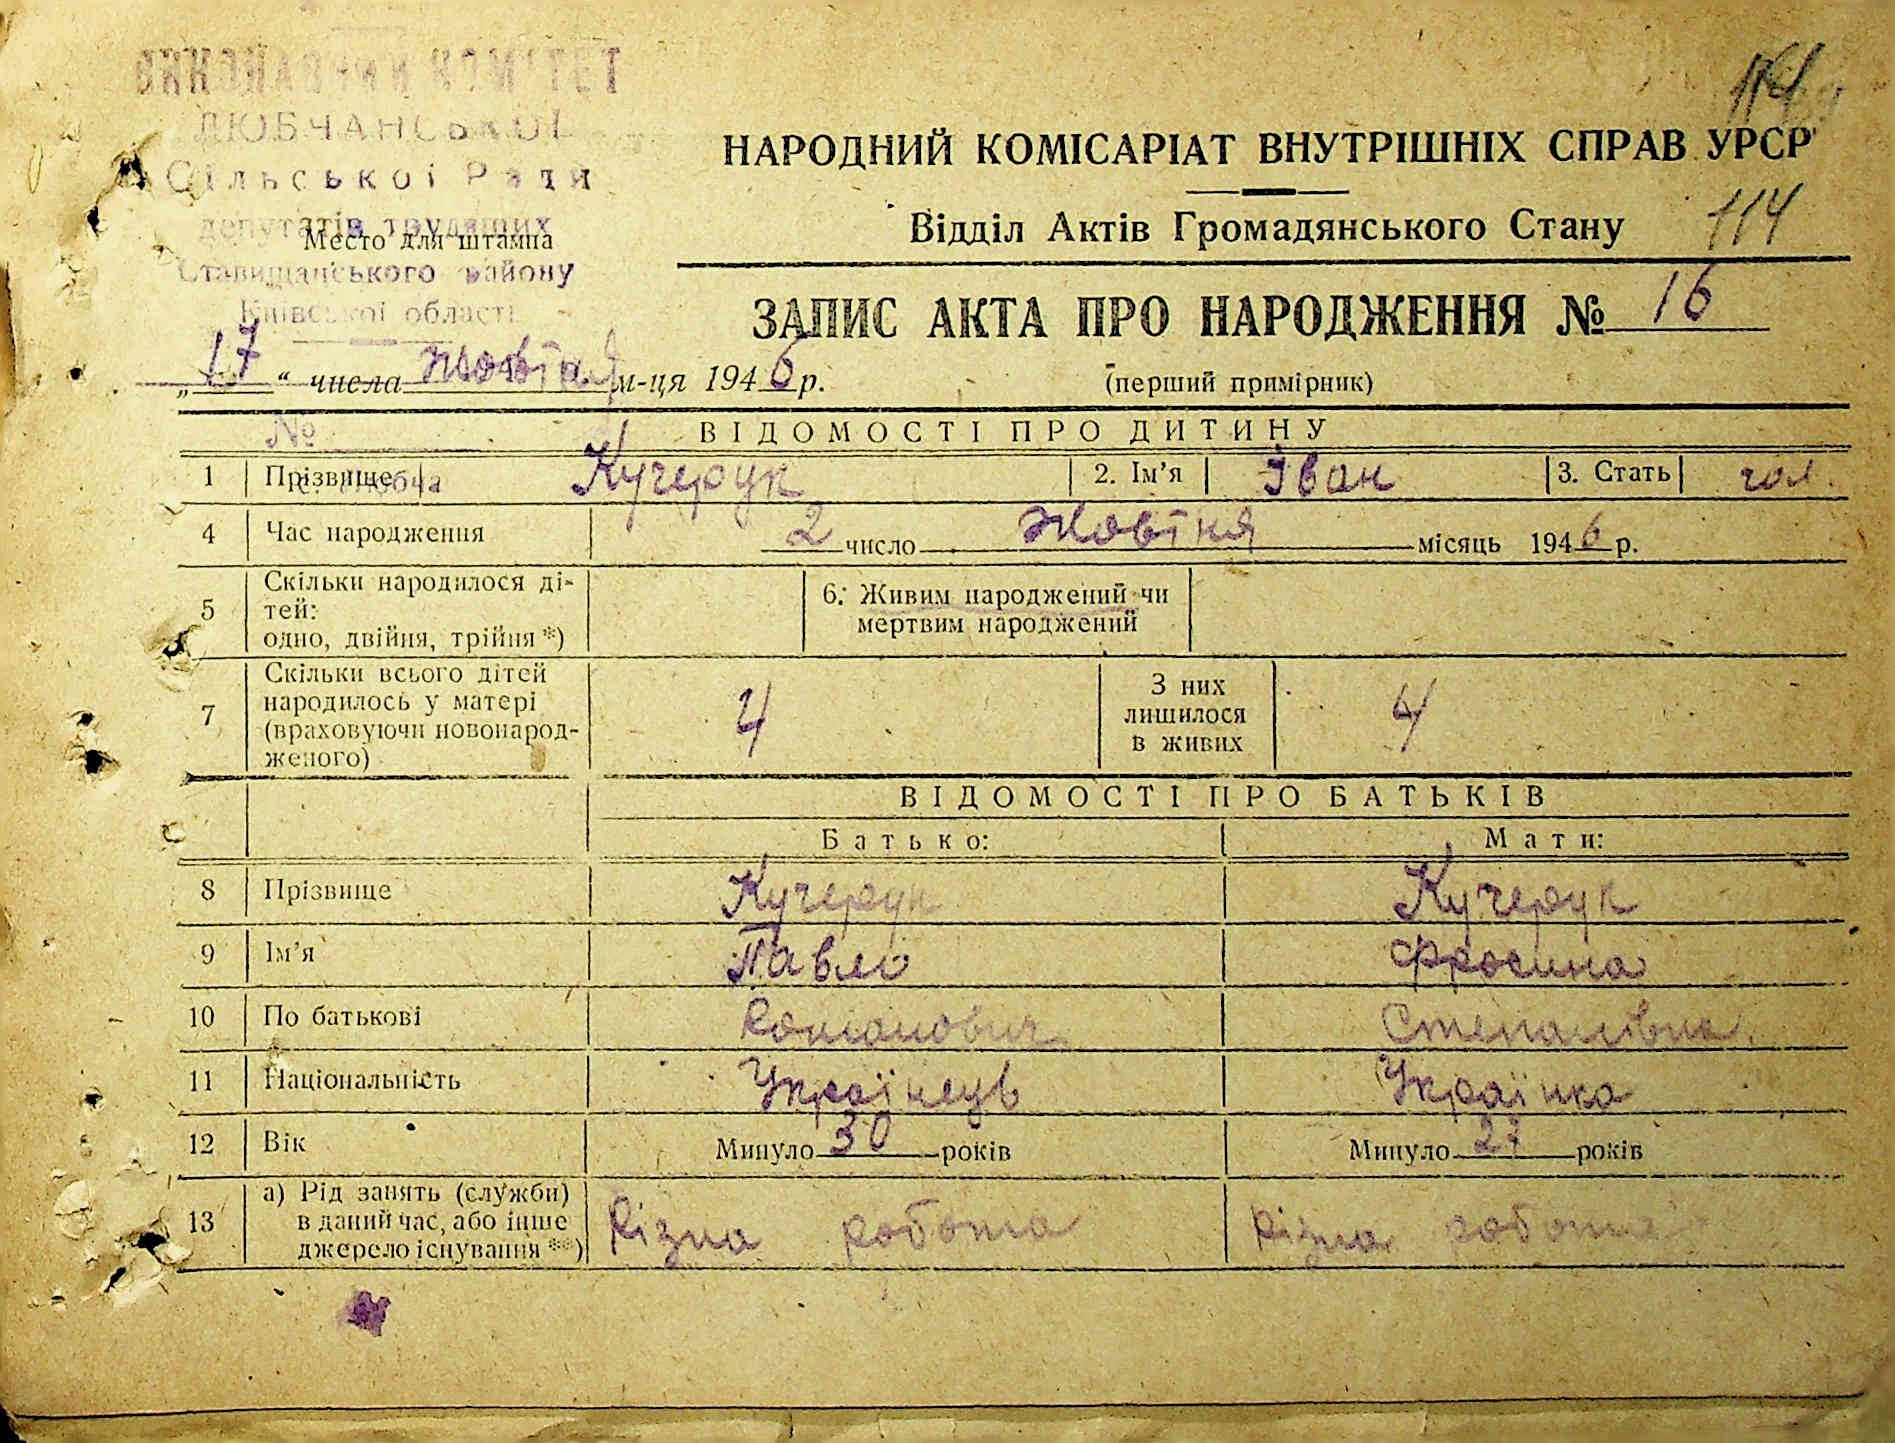 ВИКОНАВЧИЙ КОМІТЕТ
ЛЮБЧАНСЬКОЇ
Сільської Ради
депутатів трудящих
Место для штампа
Ставищанського району
Київської області
114
НАРОДНИЙ КОМІСАРІАТ ВНУТРІШНІХ СПРАВ УРСР
Відділ Актів Громадянського Стану 114
ЗАПИС АКТА ПРО НАРОДЖЕННЯ № 16
„17“ числа жовтня м-ця 1946 р. (перший примірник)
№
ВІДОМОСТІ ПРО ДИТИНУ
1 Прізвище Кучерук 2. Ім’я Іван 3. Стать чол.
с. Любча
4 Час народження 2 число жовтня місяць 1946 р.
5 Скільки народилося ді-
тей:
одно, двійня, трійня *)
6. Живим народжений чи
мертвим народжений
7 Скільки всього дітей
народилось у матері
(враховуючи новонарод-
женого)
4
З них
лишилося
в живих
4
ВІДОМОСТІ ПРО БАТЬКІВ
Батько: Мати:
8 Прізвище Кучерук Кучерук
9 Ім’я Павло Фросина
10 По батькові Романович Степанівна
11 Національність Українець Українка
12 Вік Минуло 30 років Минуло років
13 а) Рід занять (служби)
в даний час, або інше
джерело існування **)
Різна робота Різна робота